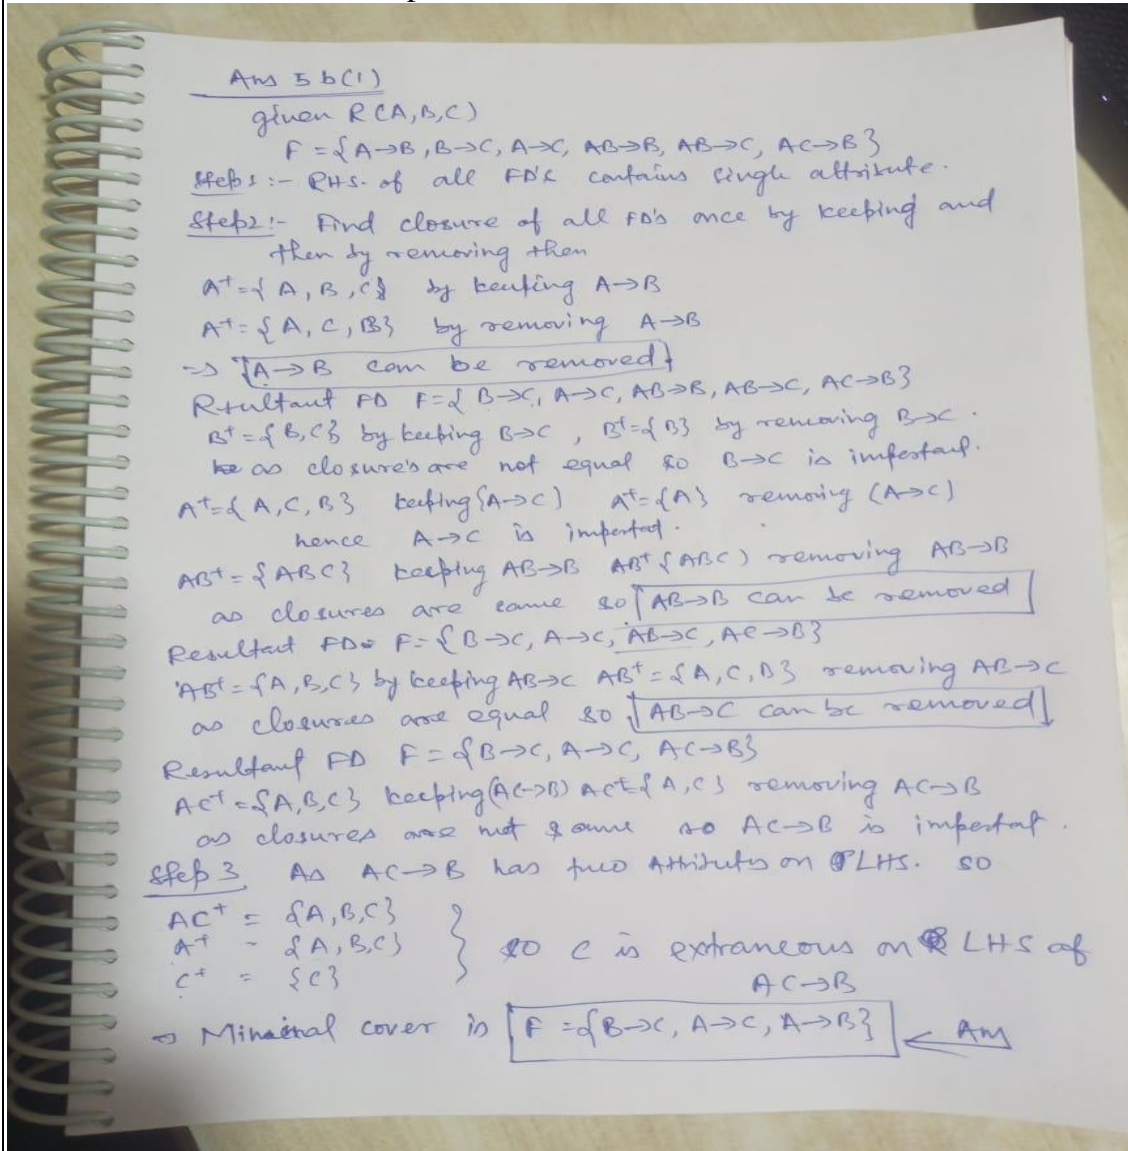 Ans 5 b(1)
given R(A,B,C)
F = {A→B, B→C, A→C, AB→B, AB→C, AC→B}
Step1:- RHS. of all FD's contains single attribute.
Step2:- Find closure of all FD's once by keeping and
then by removing then
A+ = {A, B, C} by keeping A→B
A+ = {A, C, B} by removing A→B
⇒ A→B can be removed
Resultant FD F={ B→C, A→C, AB→B, AB→C, AC→B}
B+ = {B,C} by keeping B→C , B+={B} by removing B→C.
as closure's are not equal so B→C is important.
A+={A, C, B} keeping {A→C) A+={A} removing (A→C)
hence A→C is important.
AB+ = {ABC} keeping AB→B AB+ {ABC) removing AB→B
as closures are same so AB→B can be removed
Resultant FD F={B→C, A→C, AB→C, AC→B}
AB+ = {A,B,C} by keeping AB→C AB+ = {A,C,B} removing AB→C
as closures are equal so AB→C can be removed
Resultant FD F={B→C, A→C, AC→B}
AC+ = {A,B,C} keeping(AC→B) AC+={A,C} removing AC→B
as closures are not same so AC→B is important.
Step 3 As AC→B has two Attributes on LHS. so
AC+ = {A,B,C}
A+ = {A,B,C}
C+ = {C}
so C is extraneous on LHS of
AC→B
⇒ Minimal cover is F={B→C, A→C, A→B} ← Ans